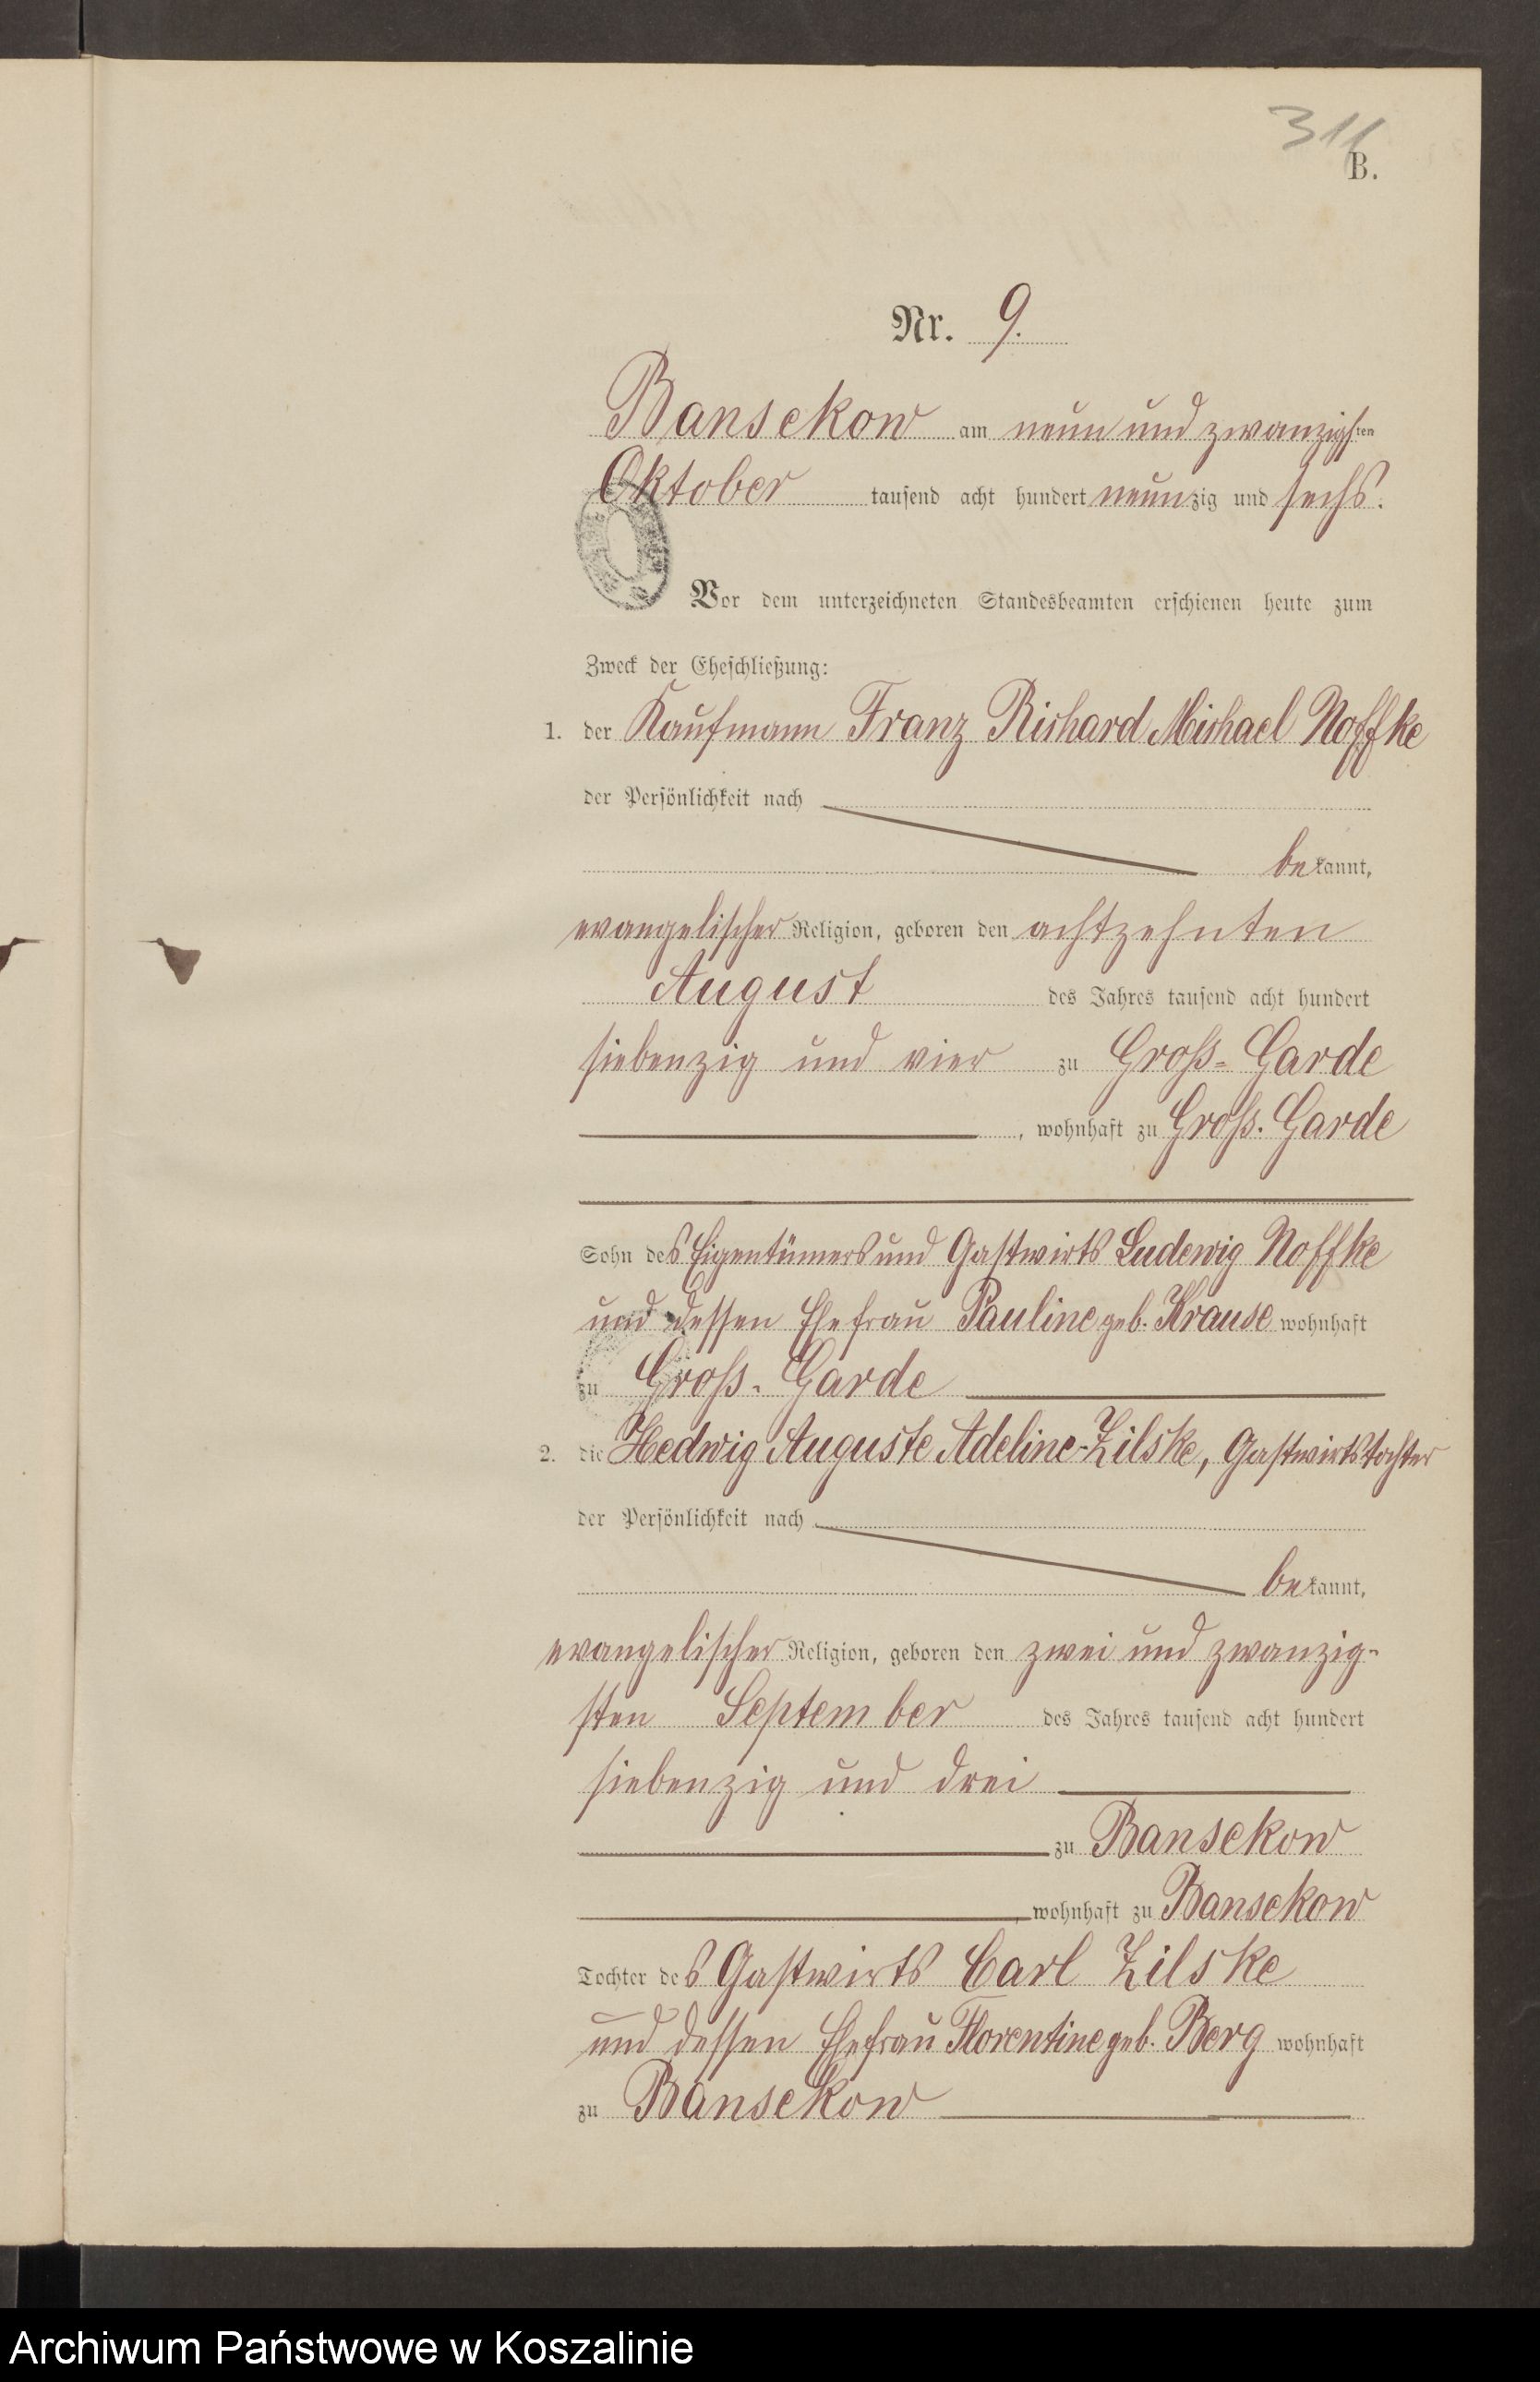 311
B.
Nr. 9.
Bansekow am neun und zwanzigsten
Oktober tausend acht hundert neunzig und sechs.
Vor dem unterzeichneten Standesbeamten erschienen heute zum
Zweck der Eheschließung:
1. der Kaufmann Franz Richard Michael Noffke
der Persönlichkeit nach
bekannt,
evangelischer Religion, geboren den achtzehnten
August des Jahres tausend acht hundert
siebenzig und vier zu Groß-Garde
, wohnhaft zu Groß-Garde
Sohn des Eigentümers und Gastwirts Ludewig Noffke
und dessen Ehefrau Pauline geb. Krause wohnhaft
zu Groß-Garde
2. die Hedwig Auguste Adeline Zilske, Gastwirtstochter
der Persönlichkeit nach
bekannt,
evangelischer Religion, geboren den zwei und zwanzig-
sten September des Jahres tausend acht hundert
siebenzig und drei
zu Bansekow
, wohnhaft zu Bansekow
Tochter des Gastwirts Carl Zilske
und dessen Ehefrau Florentine geb. Berg wohnhaft
zu Bansekow
Archiwum Państwowe w Koszalinie